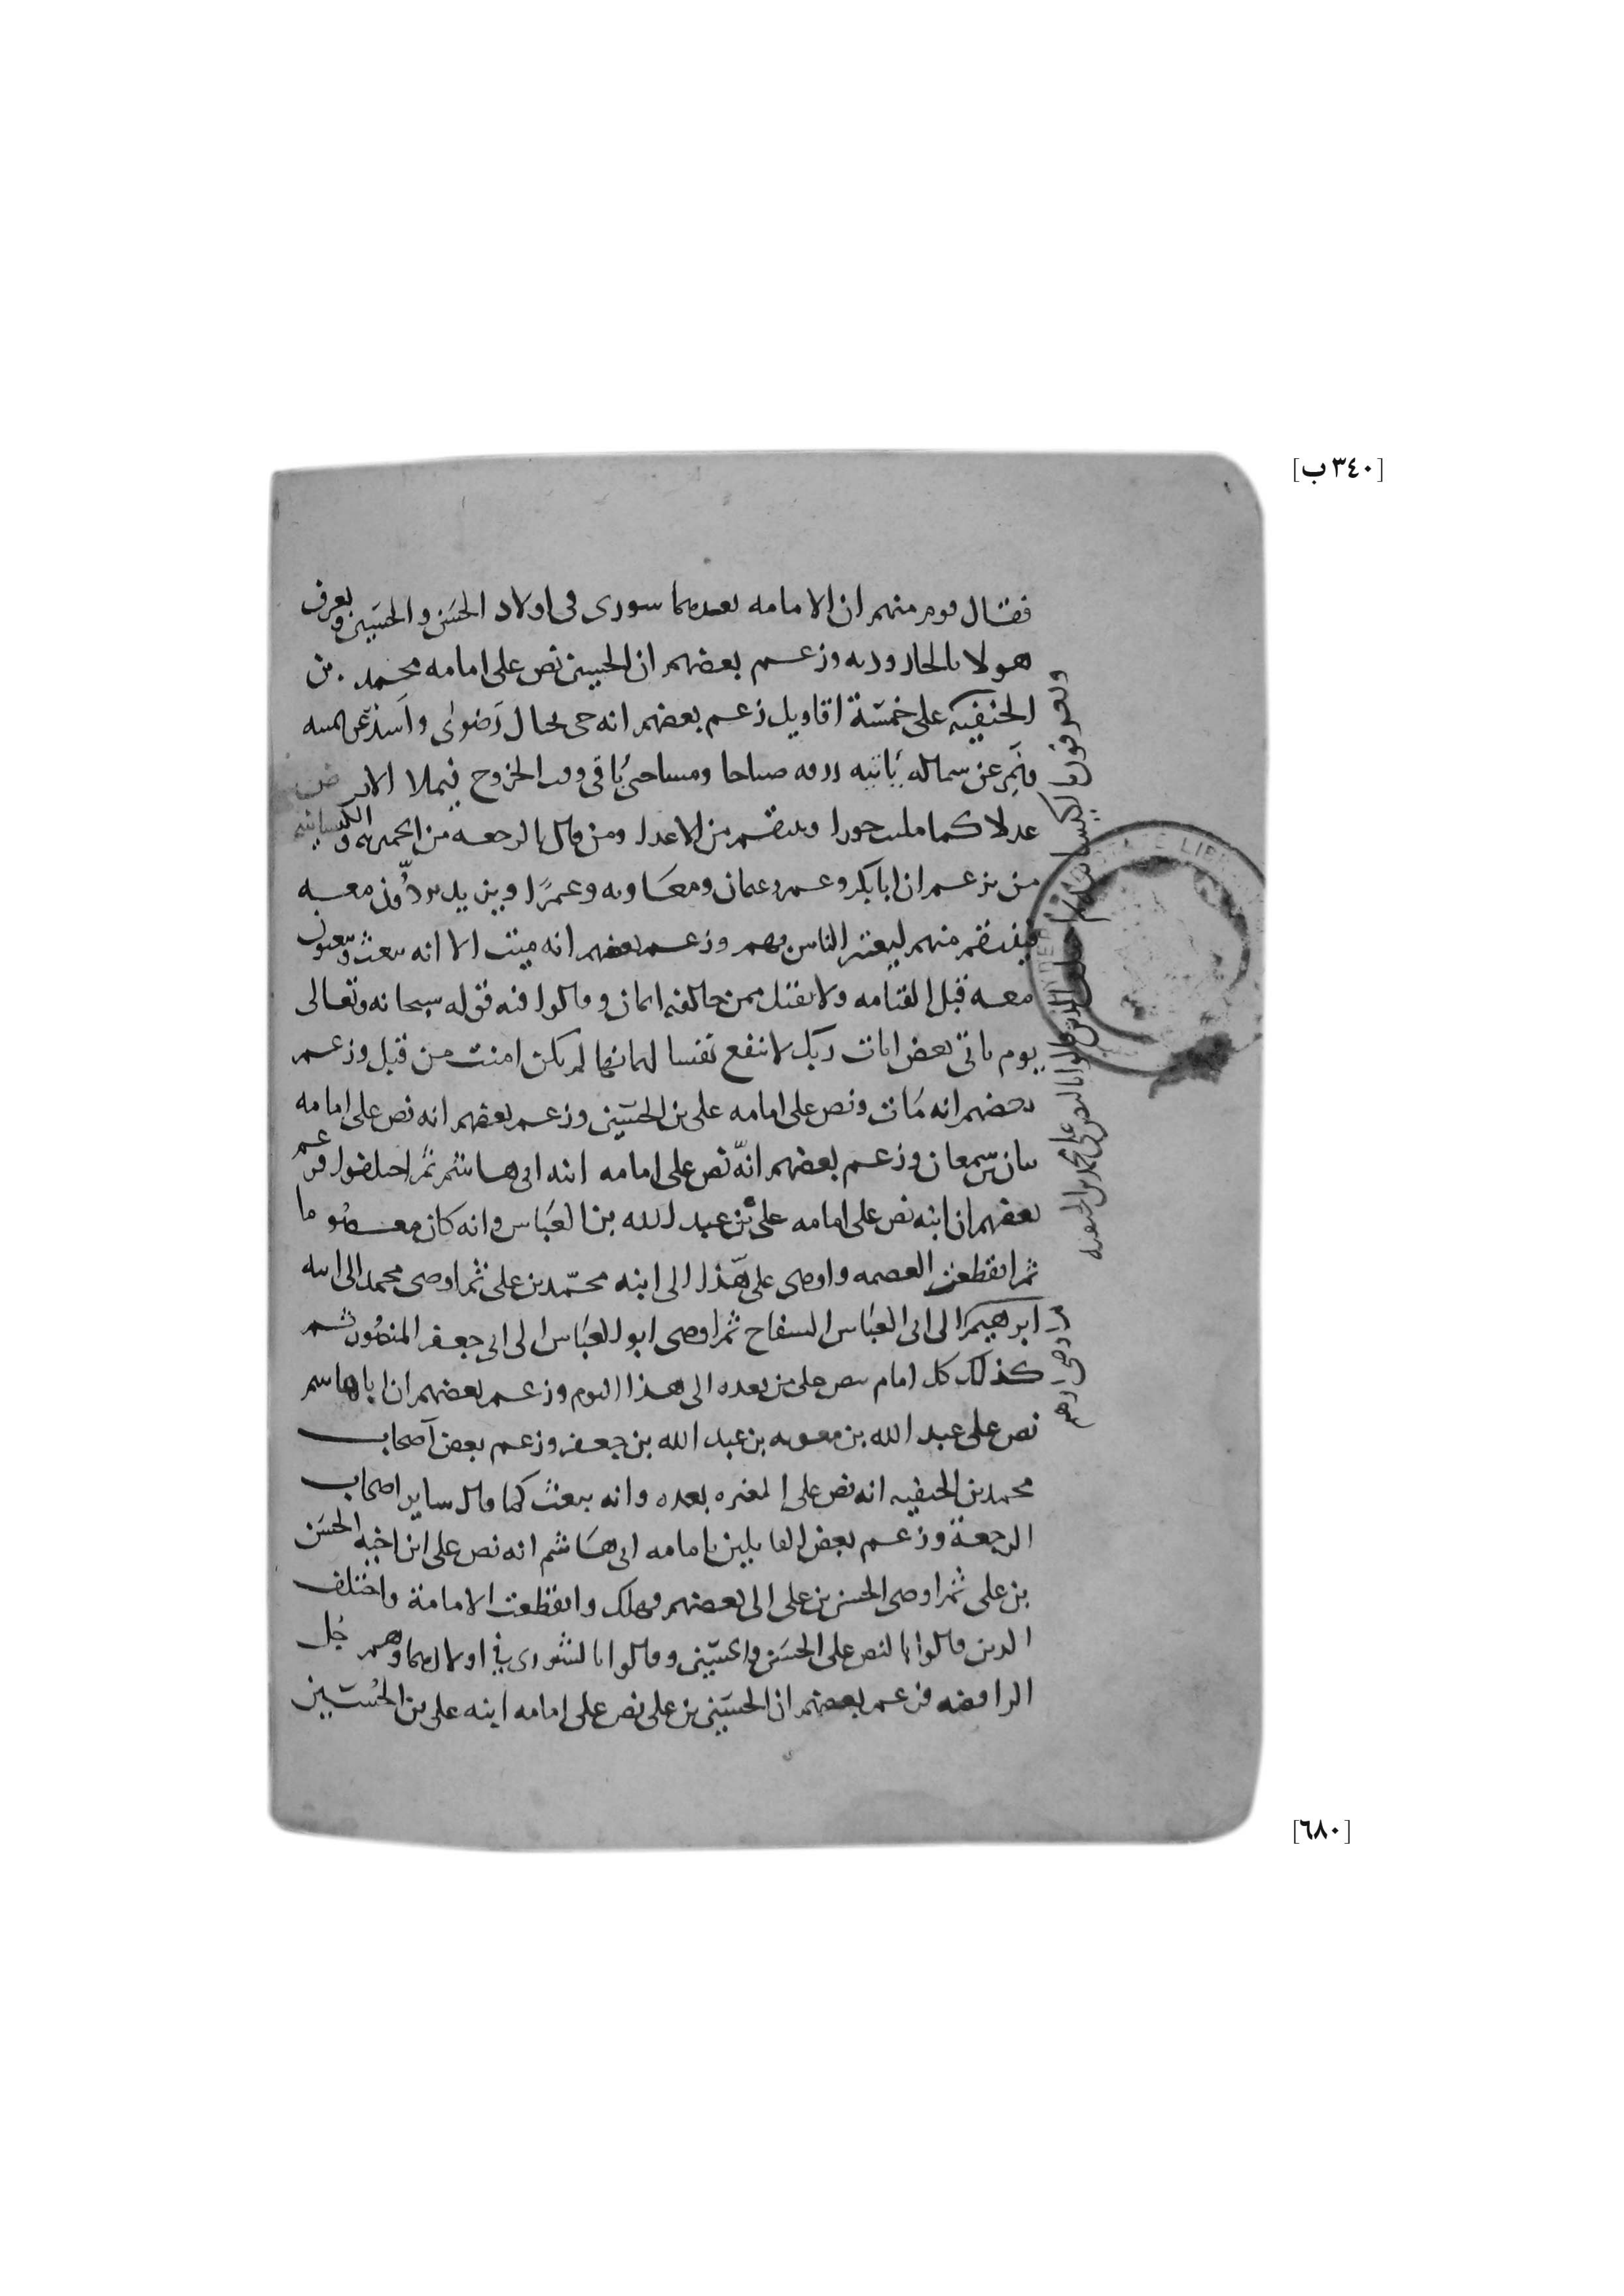 [٣٤٠ ب]
فقال قوم منهم ان الامامه بعدهما سورى فى اولاد الحسَن والحسَين ويعرف
هولا بالحاروديه وزعم بعضهم ان الحسين نص على امامه محمد بن
الحنفيه على خمسَة اقاويل زعم بعضهم انه حى بحبال رَضوى واَسَد عن يمينه
ونَمِر عن سماله ياتيه رزقه صباحا ومسا حتى ياتى وقت الخروج فيملا الارض
عدلا كما ملىت جورا وينتقم من الاعدا ومن قال بالرجعه من الحميريه والكيسانيه
من يزعم ان ابا بكر وعمر وعثمان ومعَاويه وعمرًا ويزيد يردّون معه
فينتقم منهم ليعتبر الناس بهم وزعم بعضهم انه ميت الا انه يبعث ويبعثون
معه قبل القيامه ولا يقبل ممن خالفه ايمان وقالوا فيه قوله سبحانه وتعالى
يوم ياتى بعض ايات ربك لا ينفع نفسا ايمانها لم يكن امنت من قبل وزعم
بعضهم انه مَات ونص على امامه على بن الحسَين وزعم بعضهم انه نص على امامه
بيان بن سِمعان وزعم بعضهم انّه نص على امامه ابنه ابى هاشم ثم اختلفوا فزعم
بعضهم ان ابنه نص على امامه على بن عبد الله بن العبَاس وانه كان معصُوما
ثم انقطعت العصمه واوصى على هَذا الى ابنه محمّد بن على ثم اوصى محمد الى ابنه
ابرهيم الى ابى العبَاس السفاح ثم اوصى ابو العبَاس الى ابى جعفر المنصُور ثم
كذلك كل امام ينص على من بعده الى هذا اليوم وزعم بعضهم ان ابا هاسم
نص على عبد الله بن معويه بن عبد الله بن جعفر وزعم بعض اَصحاب
محمد بن الحنفيه انه نص على المغيره بعده وانه يبعث كما قال ساير اصحاب
الرجعة وزعم بعض القايلين بامامه ابى هَاشم انه نص على ابن اخيه الحسَن
بن على ثم اوصى الحسن بن على الى بعضهم فهلك وانقطعت الامامة واختلف
الذين قالوا بالنص على الحسَن والحسَين وقالوا بالشورى فى اولادهما وهم جُل
الرافضه فزعم بعضهم ان الحسَين بن على نص على امامه ابنه على بن الحُسَين
ويعرفون بالكيسانيه الذين قالوا بالنص على محمد بن الحنفيه
[٦٨٠]